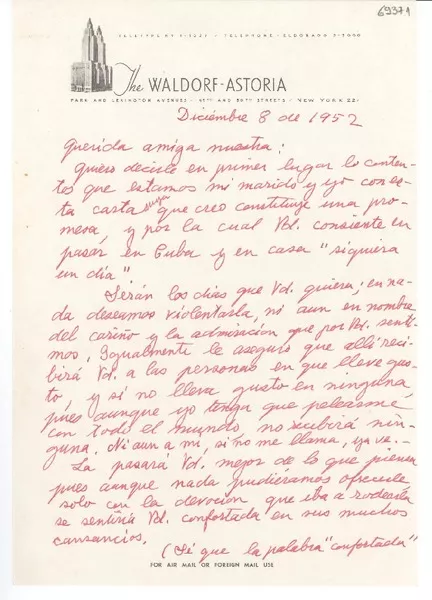 69371
TELETYPE NY 1-2028 - TELEPHONE - ELDORADO 5-3000
The WALDORF-ASTORIA
PARK AND LEXINGTON AVENUES · 49TH AND 50TH STREETS · NEW YORK 22
Diciembre 8 de 1952
Querida amiga nuestra:
Quiero decirle en primer lugar lo conten-
tos que estamos mi marido y yo con es-
ta carta suya que creo constituye una pro-
mesa, y por la cual Vd. consiente en
pasar en Cuba y en casa "siquiera
un día".
Serán los días que Vd. quiera; en na-
da deseamos violentarla, ni aun en nombre
del cariño y la admiración que por Vd. senti-
mos. Igualmente le aseguro que allí reci-
birá Vd. a las personas en que lleve gus-
to, y si no lleva gusto en ninguna
pues aunque yo tenga que pelearme
con todo el mundo, no recibirá nin-
guna. Ni aun a mí, si no me llama, ya ve.-
La pasará Vd. mejor de lo que piensa
pues aunque nada pudiéramos ofrecerle
solo con la devoción que iba a rodearla
se sentiría Vd. confortada en sus muchos
cansancios.
(Sé que la palabra "confortada"
FOR AIR MAIL OR FOREIGN MAIL USE